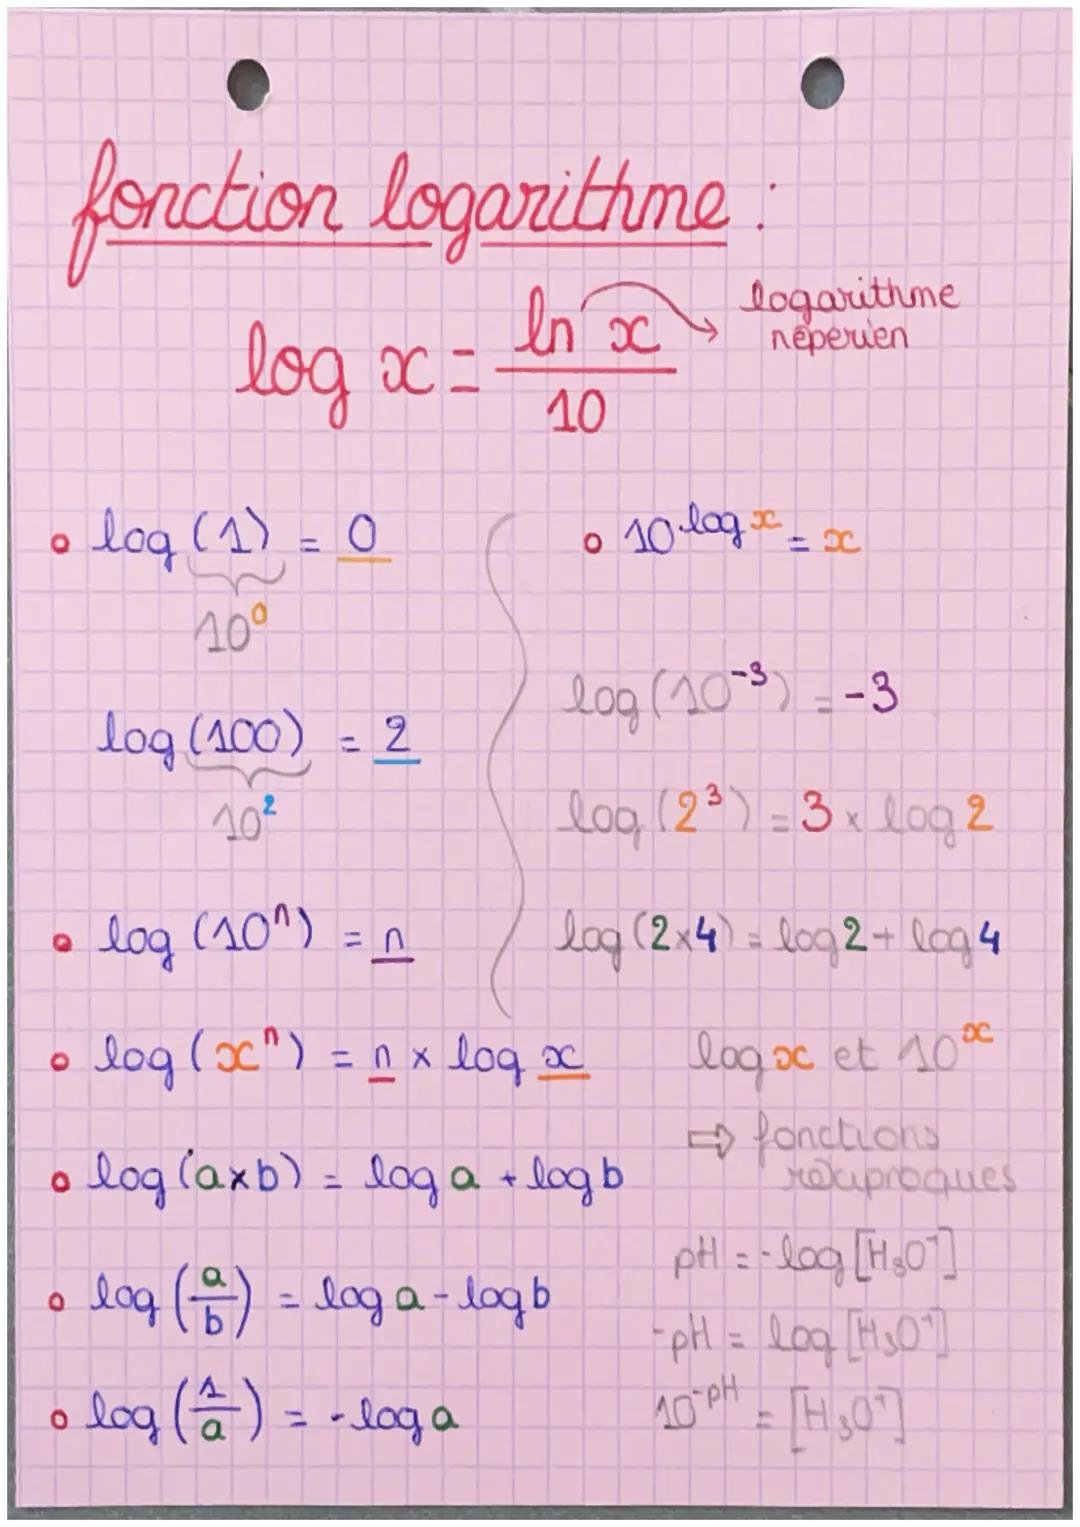 fonction logarithme :
log x = ln x / 10
logarithme
néperien
log (1) = 0
10⁰
log (100) = 2
10²
log (10ⁿ) = n
log (xⁿ) = n × log x
log (a×b) = log a + log b
log (a/b) = log a - log b
log (1/a) = - log a
10^log x = x
log (10⁻³) = -3
log (2³) = 3 × log 2
log (2×4) = log 2 + log 4
log x et 10ˣ
⇨ fonctions
réciproques
pH = - log [H₃O⁺]
-pH = log [H₃O⁺]
10^-pH = [H₃O⁺]